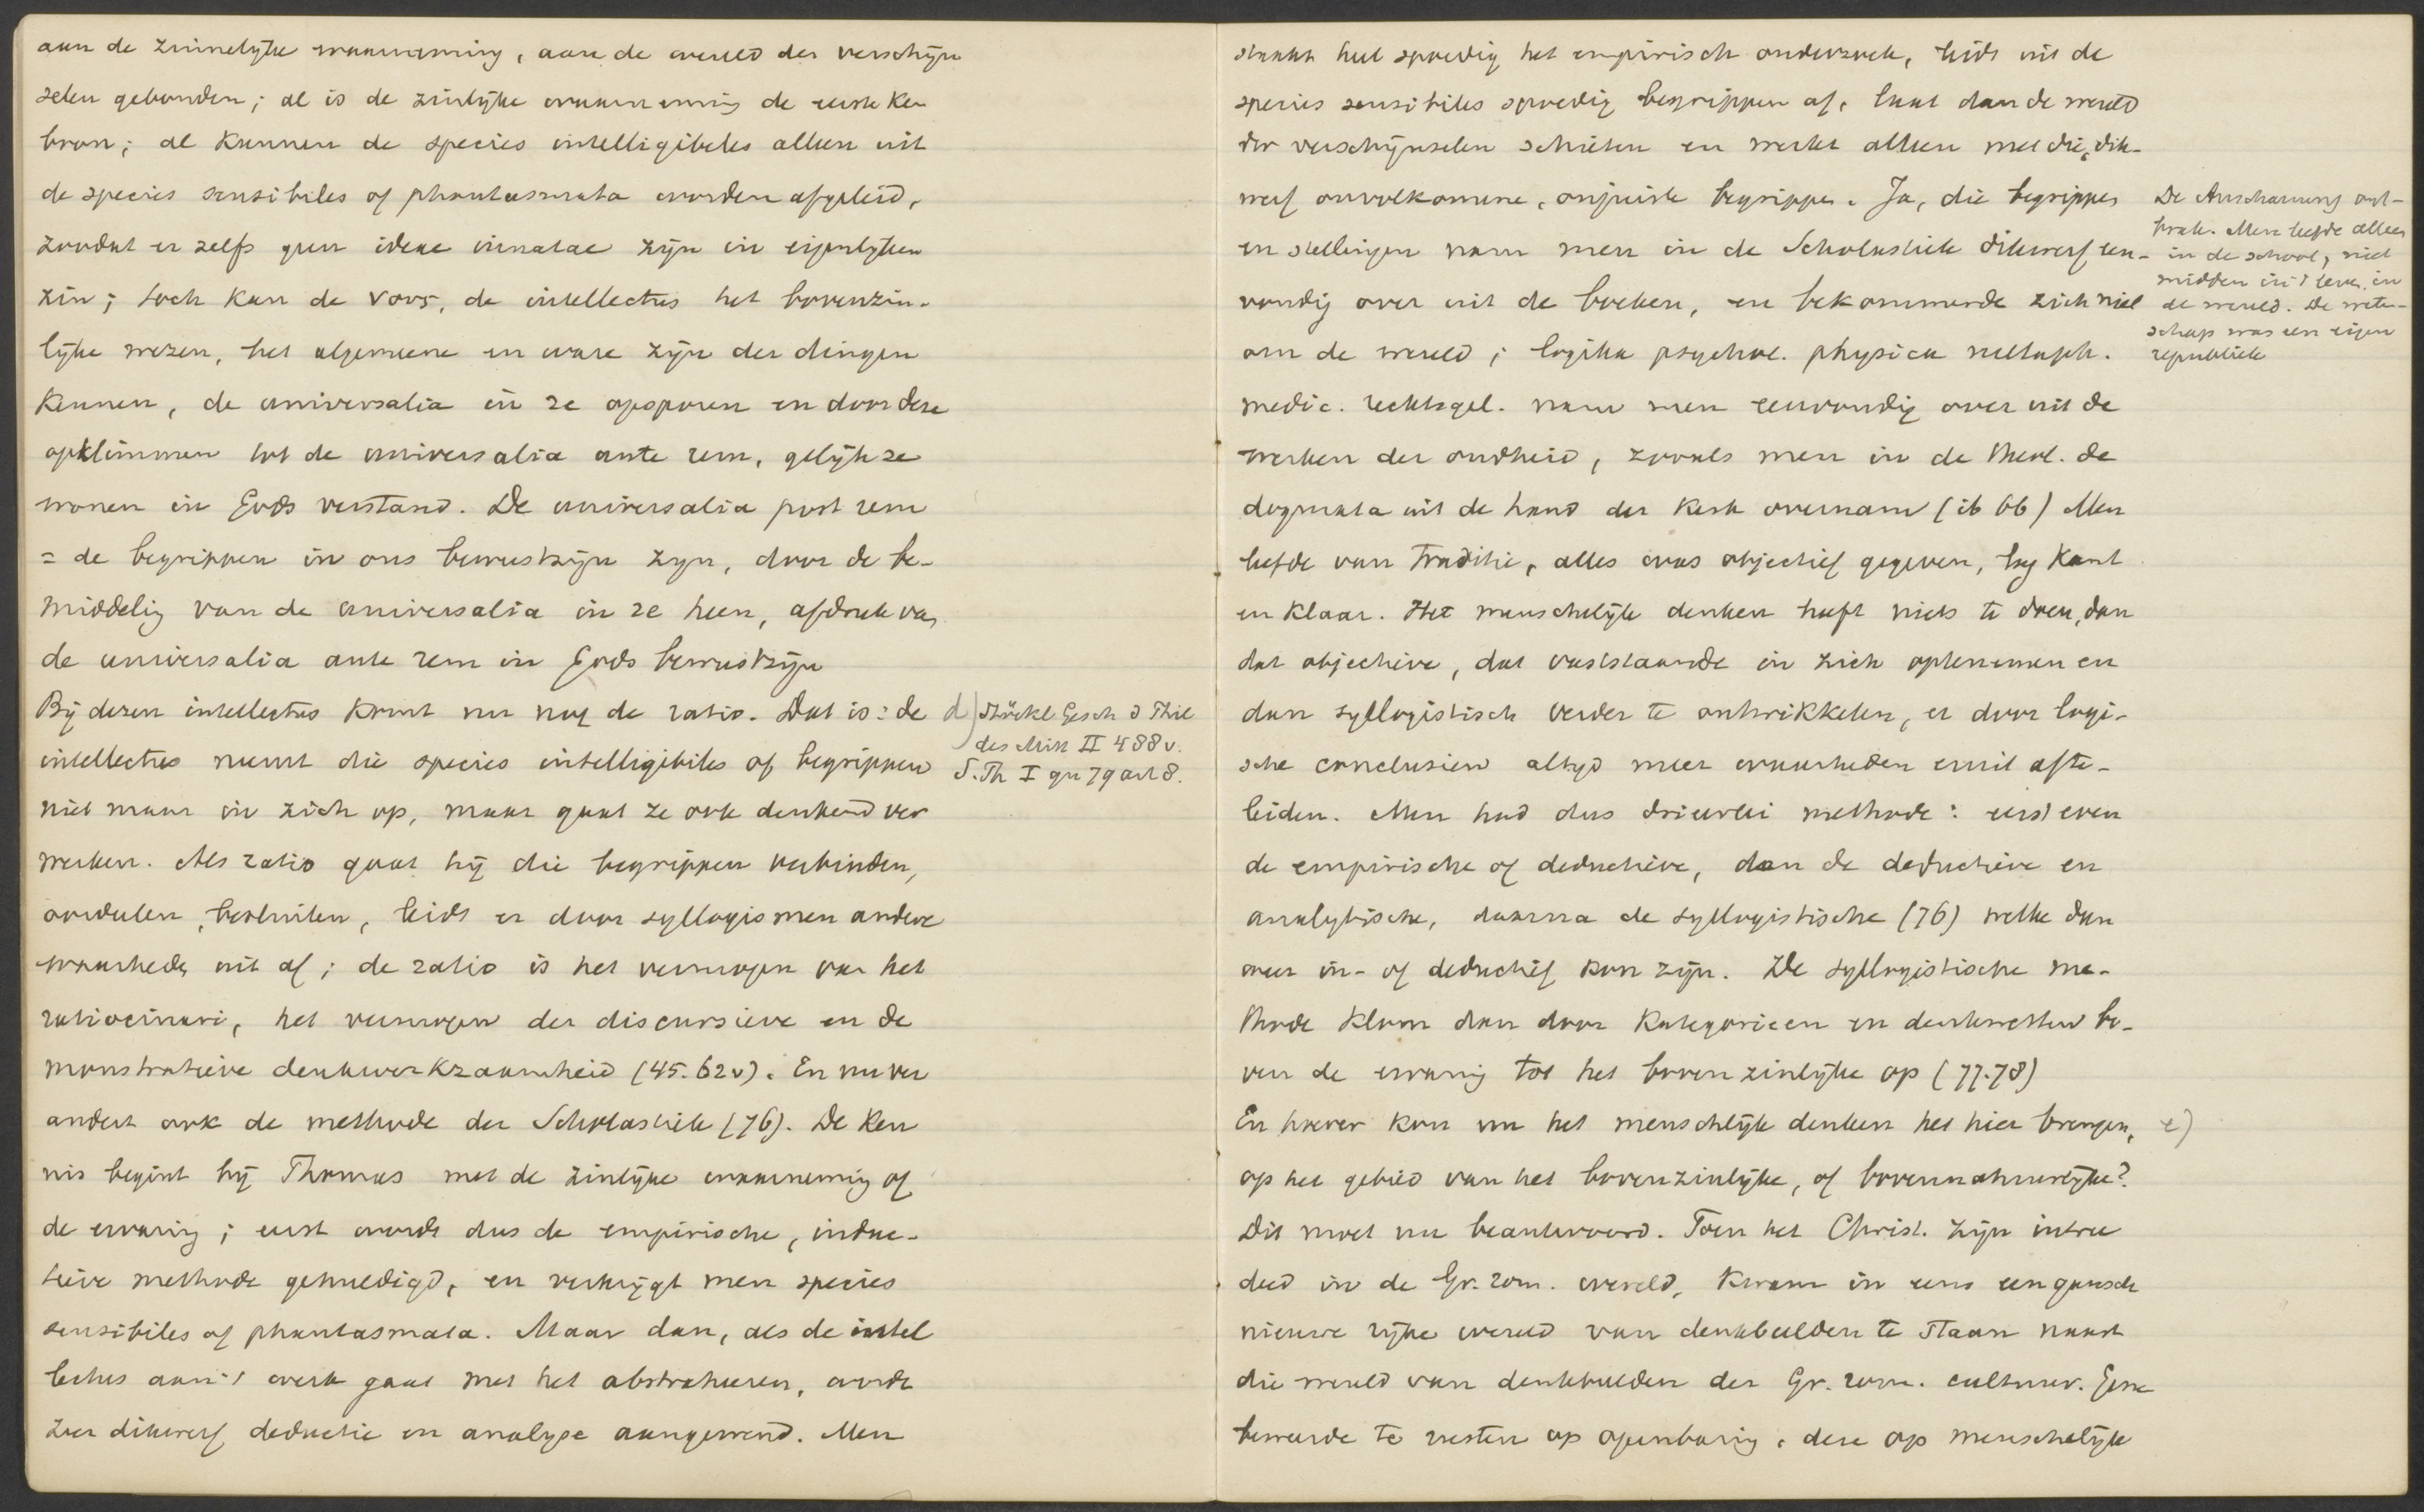 aan de zinnelyke waarneming, aan de wereld der verschijn
selen gebonden; al is de zinlijke waarneming de eerste ken
bron; al kunnen de species intelligibeles alleen uit
de species sensibiles of phantasmata worden afgeleid,
zoodat er zelfs geen ideae innatae zijn in eigenlyken
zin; toch kan de νους, de intellectus het bovenzin-
lijke wezen, het algemeene en ware zijn der dingen
kennen, de universalia in re opsporen en door deze
opklimmen tot de universalia ante rem, gelijk ze
wonen in Gods verstand. De universalia post rem
= de begrippen in ons bewustzijn zyn, door de be-
middelig van de universalia in re heen, afdruk van
de universalia ante rem in Gods bewustzijn
Bij dezen intellectus komt nu nog de ratio. Dat is: de
intellectus neemt die species intelligibiles of begrippen
niet maar in zich op, maar gaat ze ook denkend ver
werken. Als ratio gaat hij die begrippen verbinden,
oordeelen, besluiten, leidt er door syllogismen andere
waarheden uit af; de ratio is het vermogen van het
ratiocinari, het vermogen der discursieve en de
monstratieve denkwerkzaamheid (45. 62v). En nu ver
andert ook de methode der Scholastiek (76). De Ken
nis begint bij Thomas met de zinlijke waarneming of
de ervaring; eerst wordt dus de empirische, induc-
tieve methode gehuldigd, en verkrijgt men species
sensibiles of phantasmata. Maar dan, als de intel
lectus aan 't werk gaat met het abstraheeren, wordt
zeer dikwerf deductie en analyse aangewend. Men
d) Stöckl Gesch d Phil
des Mitt II 488 v.
S. Th I qu 79 art 8.
staakt heel spoedig het empirisch onderzoek, leidt uit de
species sensibiles spoedig begrippen af, laat dan de wereld
der verschijnselen schieten en werkt alleen met die, dik-
werf onvolkomene, onjuiste begrippen. Ja, die begrippen
en stellingen nam men in de Scholastiek dikwerf een-
voudig over uit de boeken, en bekommerde zich niet
om de wereld; logika psychol. physica metaph.
medic. rechtsgel. nam men eenvoudig over uit de
werken der oudheid, zooals men in de Theol. de
dogmata uit de hand der Kerk overnam (ib 66) Men
leefde van Traditie, alles was objectief gegeven, lag kant
en klaar. Het menschelijk denken heeft niets te doen, dan
dat objectieve, dat vaststaande in zich opteneemen en
dan syllogistisch verder te ontwikkelen, er door logi-
sche conclusien altyd meer waarheden eruit afte-
leiden. Men had dus drieerlei methode: eerst even
de empirische of deductieve, dan de deductieve en
analytische, daarna de syllogistische (76) welke dan
weer in- of deductief kon zijn. De syllogistische me-
thode klom dan door Kategorieen en denkwetten bo-
ven de ervaring tot het bovenzinlijke op (77.78)
En hoever kon nu het menschlijk denken het hier brengen,
op het gebied van het bovenzinlijke, of bovennatuurlijke?
Dit moet nu beantwoord. Toen het Christ. zijn intree
deed in de Gr. rom. wereld, kwam in eens een gansch
nieuwe rijke wereld van denkbeelden te staan naast
die wereld van denkbeelden der Gr. rom. cultuur. Gene
beweerde te rusten op openbaring, deze op menschelijk
De Anschauung ont-
brak. Men leefde alleen
in de school, niet
midden in 't leven, in
de wereld. De weten-
schap was een eigen
republiek
e)